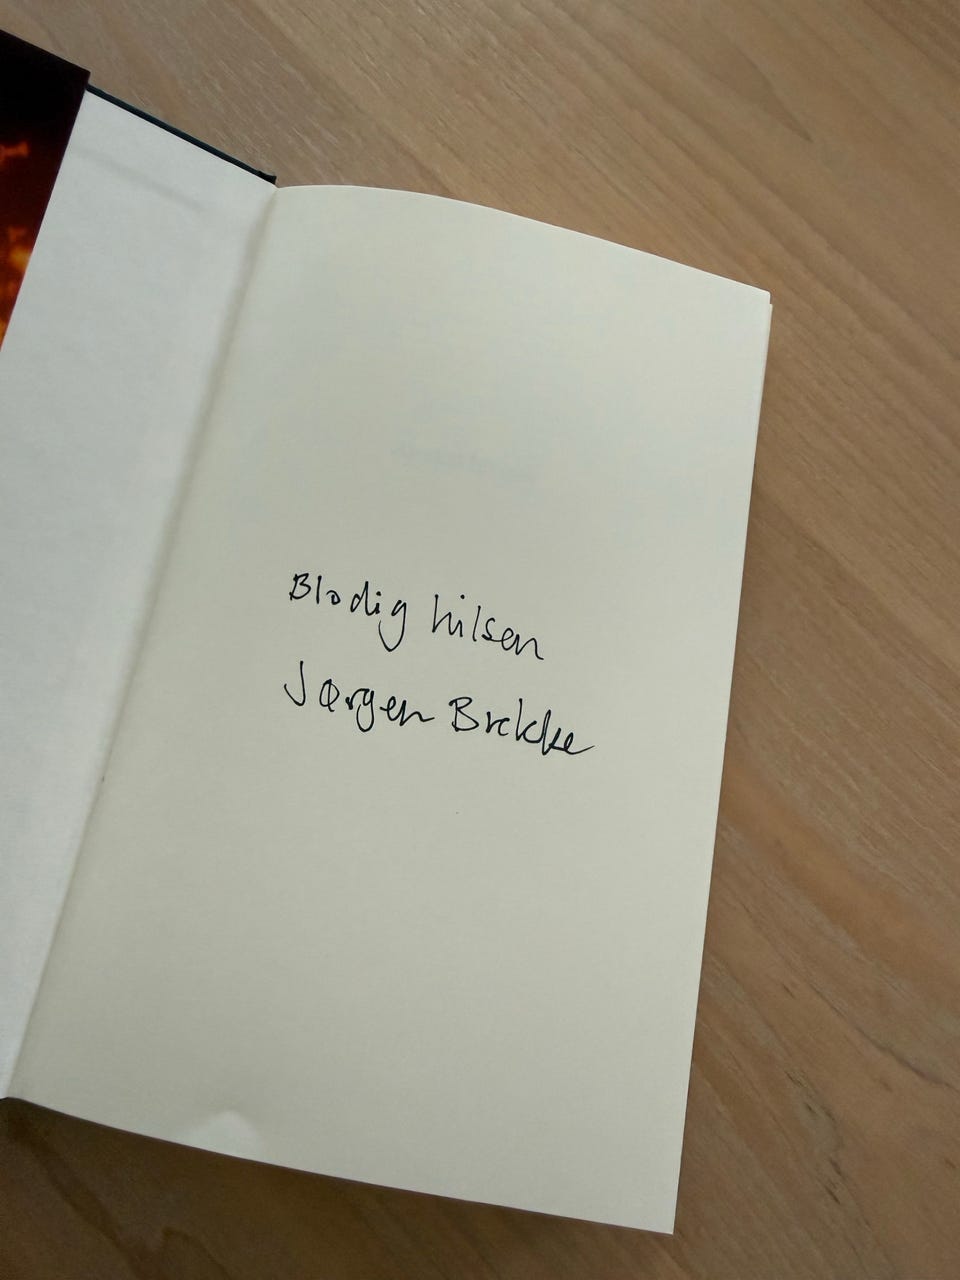 Blodig hilsen
Jørgen Brekke